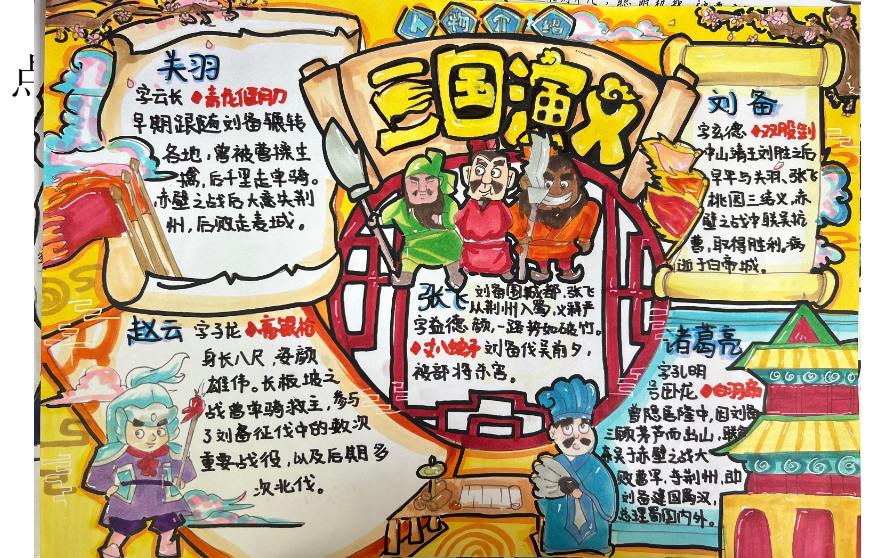 人物介绍
三国演义
关羽
字云长 ◆青龙偃月刀
早期跟随刘备辗转
各地，曾被曹操生
擒，后千里走单骑。
赤壁之战后大意失荆
州，后败走麦城。
刘备
字玄德 ◆双股剑
中山靖王刘胜之后
早年与关羽、张飞
桃园三结义，赤
壁之战中联吴抗
曹，取得胜利。病
逝于白帝城。
张飞
字益德
◆丈八蛇矛
刘备围成都，张飞
从荆州入蜀，义释严
颜，一路势如破竹。
刘备伐吴前夕，
被部将杀害。
赵云 字子龙 ◆亮银枪
身长八尺，姿颜
雄伟。长板坡之
战曹单骑救主，参与
了刘备征伐中的数次
重要战役，以及后期多
次北伐。
诸葛亮
字孔明
号卧龙 ◆白羽扇
曾隐居隆中，因刘备
三顾茅芦而出山，联
东吴于赤壁之战大
败曹军，夺荆州，即
刘备建国蜀汉，
总理蜀国内外。
点